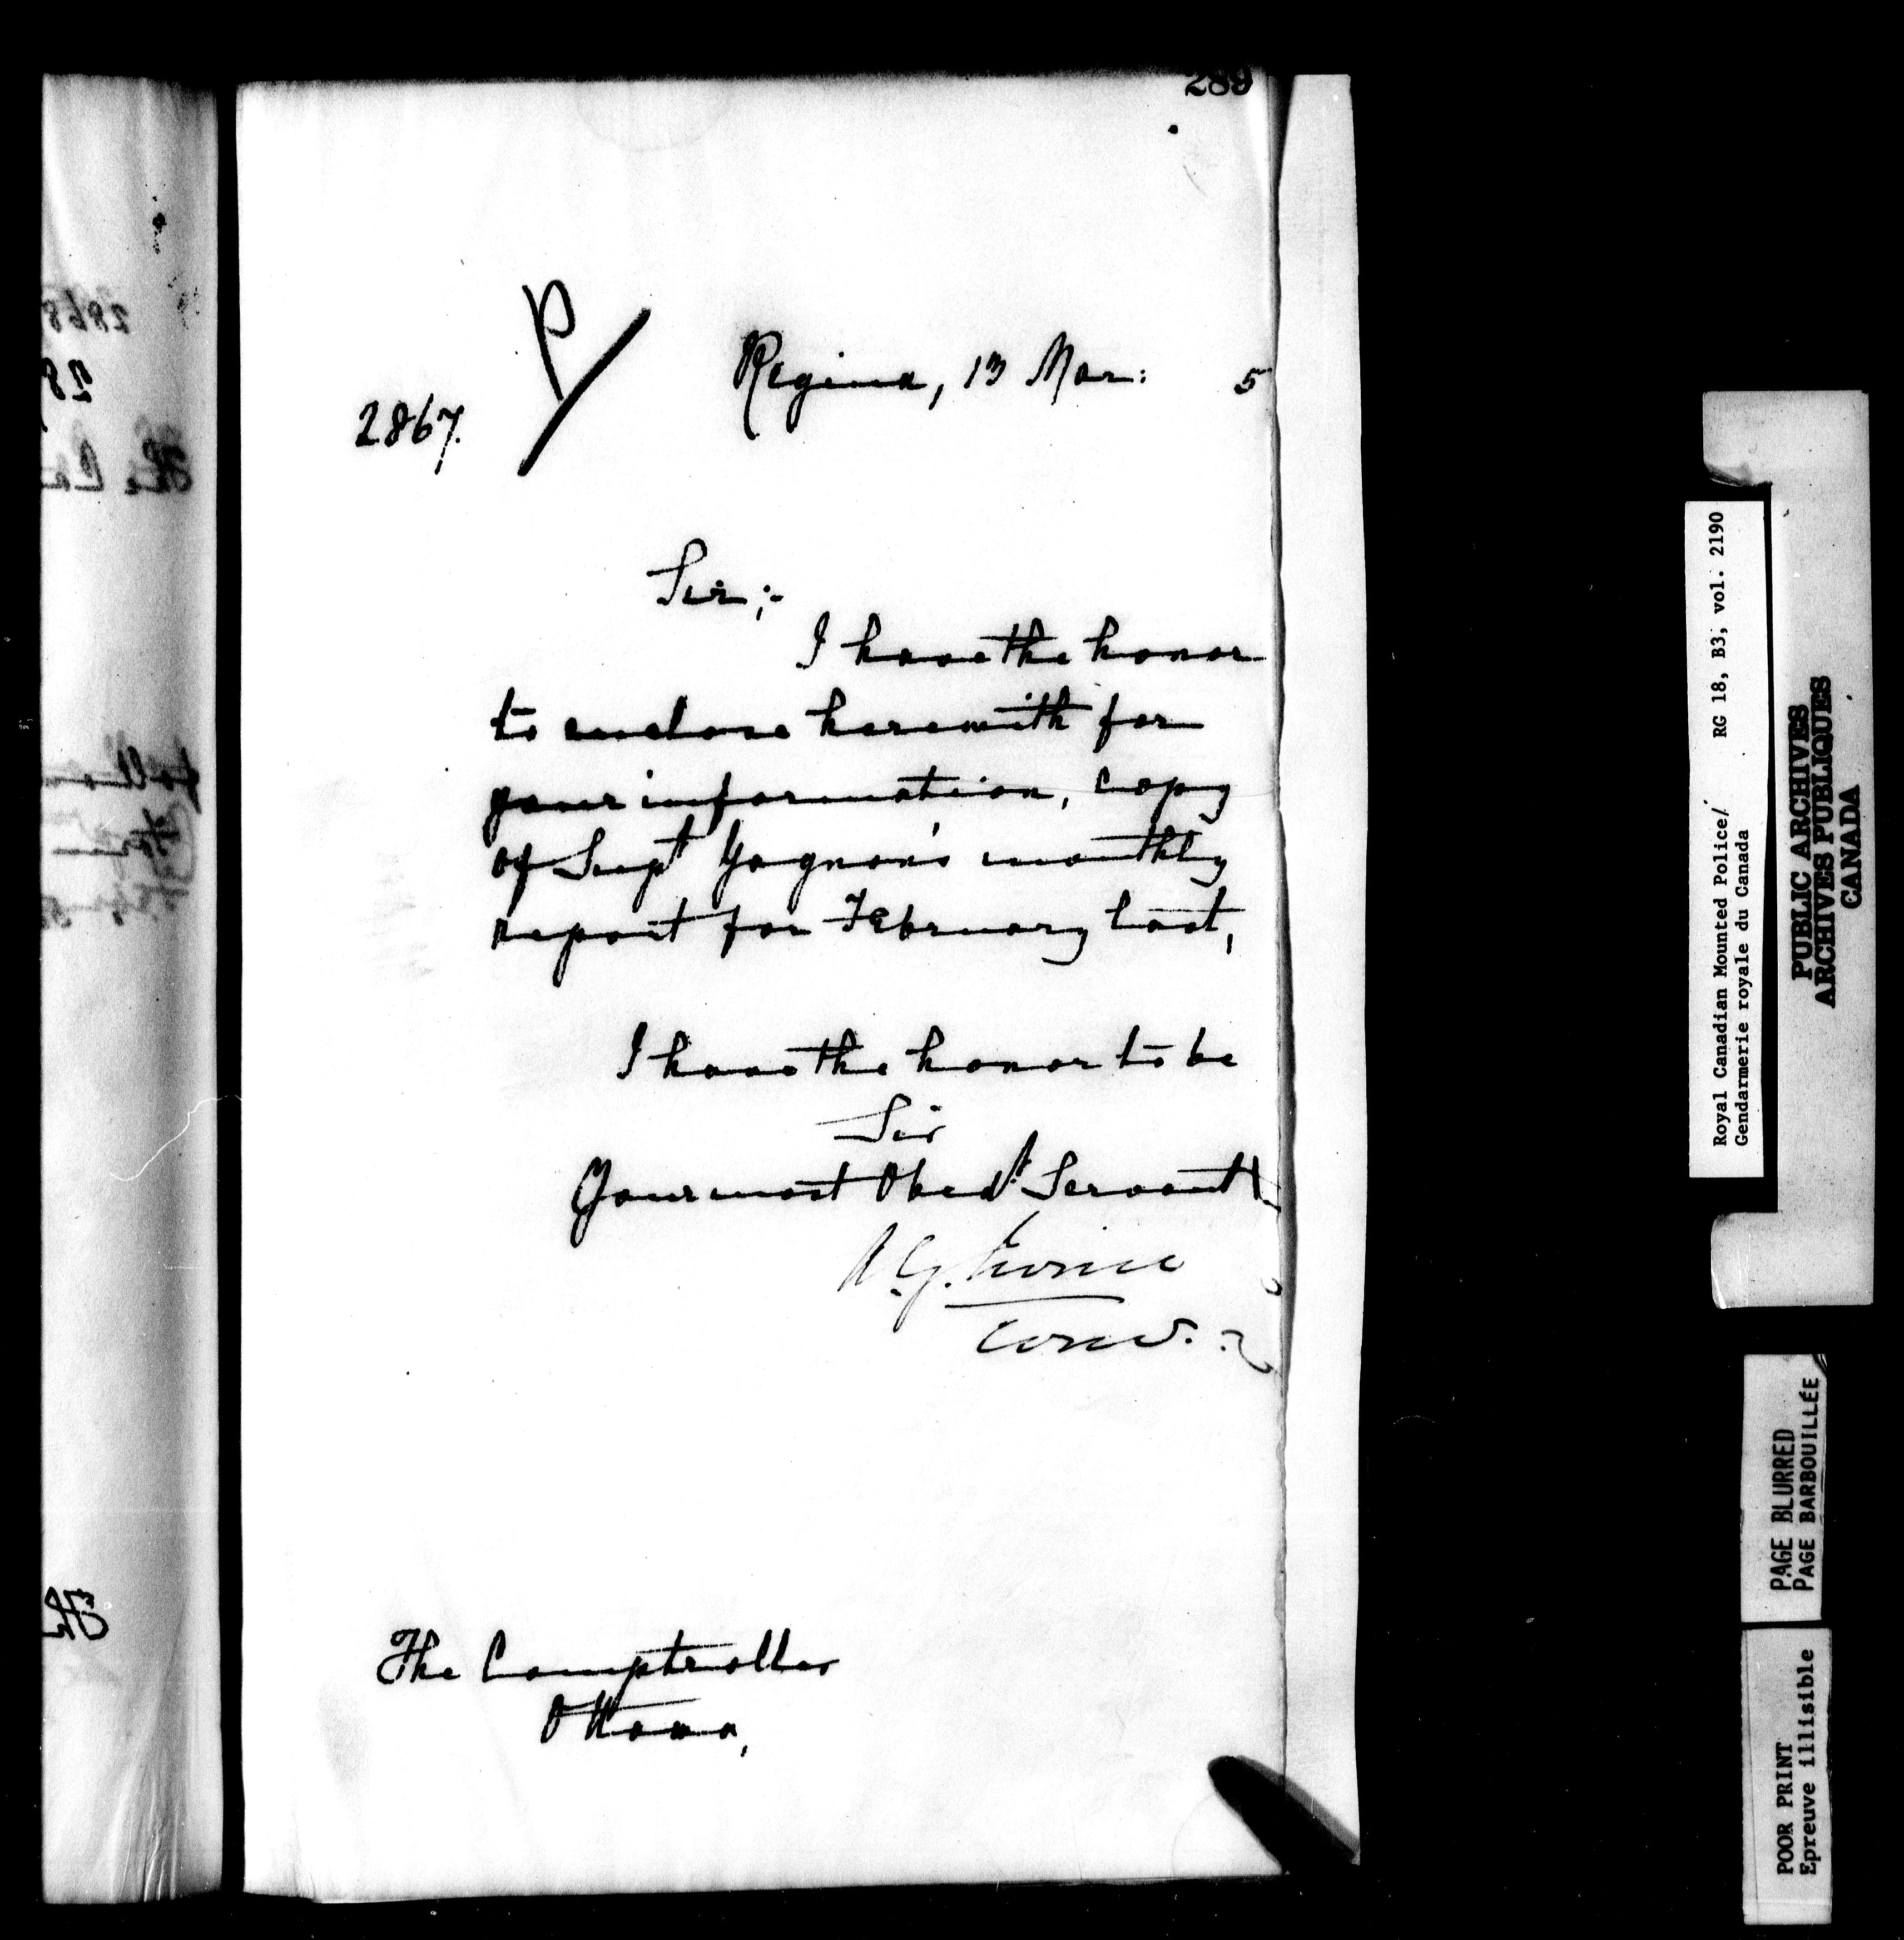 289
P/
Regina, 13 Mar: 5
2867.
Sir;-
I have the honor
to enclose herewith for
your information, copy
of Supt Gagnon's monthly
report for February last,
I have the honor to be
Sir
Your most Obedt Servant
A.G. Irvine
Comr.
The Comptroller
Ottawa,
2868
28
The
Royal Canadian Mounted Police/ RG 18, B3, vol. 2190
Gendarmerie royale du Canada
PUBLIC ARCHIVES
ARCHIVES PUBLIQUES
CANADA
PAGE BLURRED
PAGE BARBOUILLÉE
POOR PRINT
Epreuve illisible